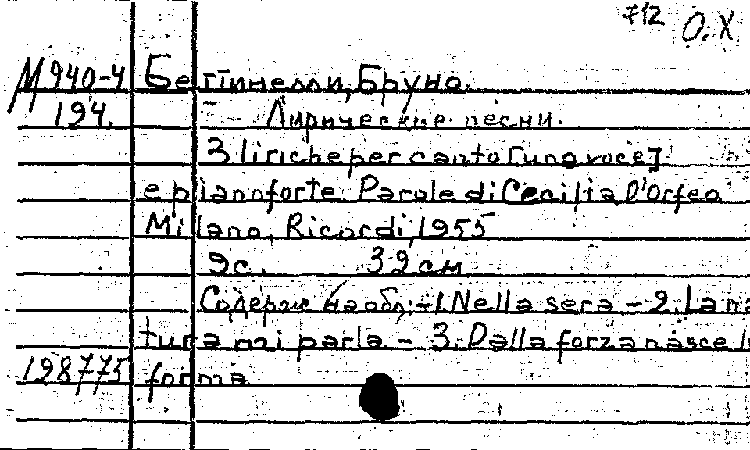 712 О.Х
М940-4 Беттинелли, Бруно.
194. Лирические песни.
3 liriche per canto [una voce]
e pianoforte. Parole di Cecilia d'Orfeo
Milano, Ricordi, 1955
9с. 32см
Содерж на обл: -1. Nella sera - 2. La na
tura mi parla - 3. Dalla forza nasce l
198775 forma